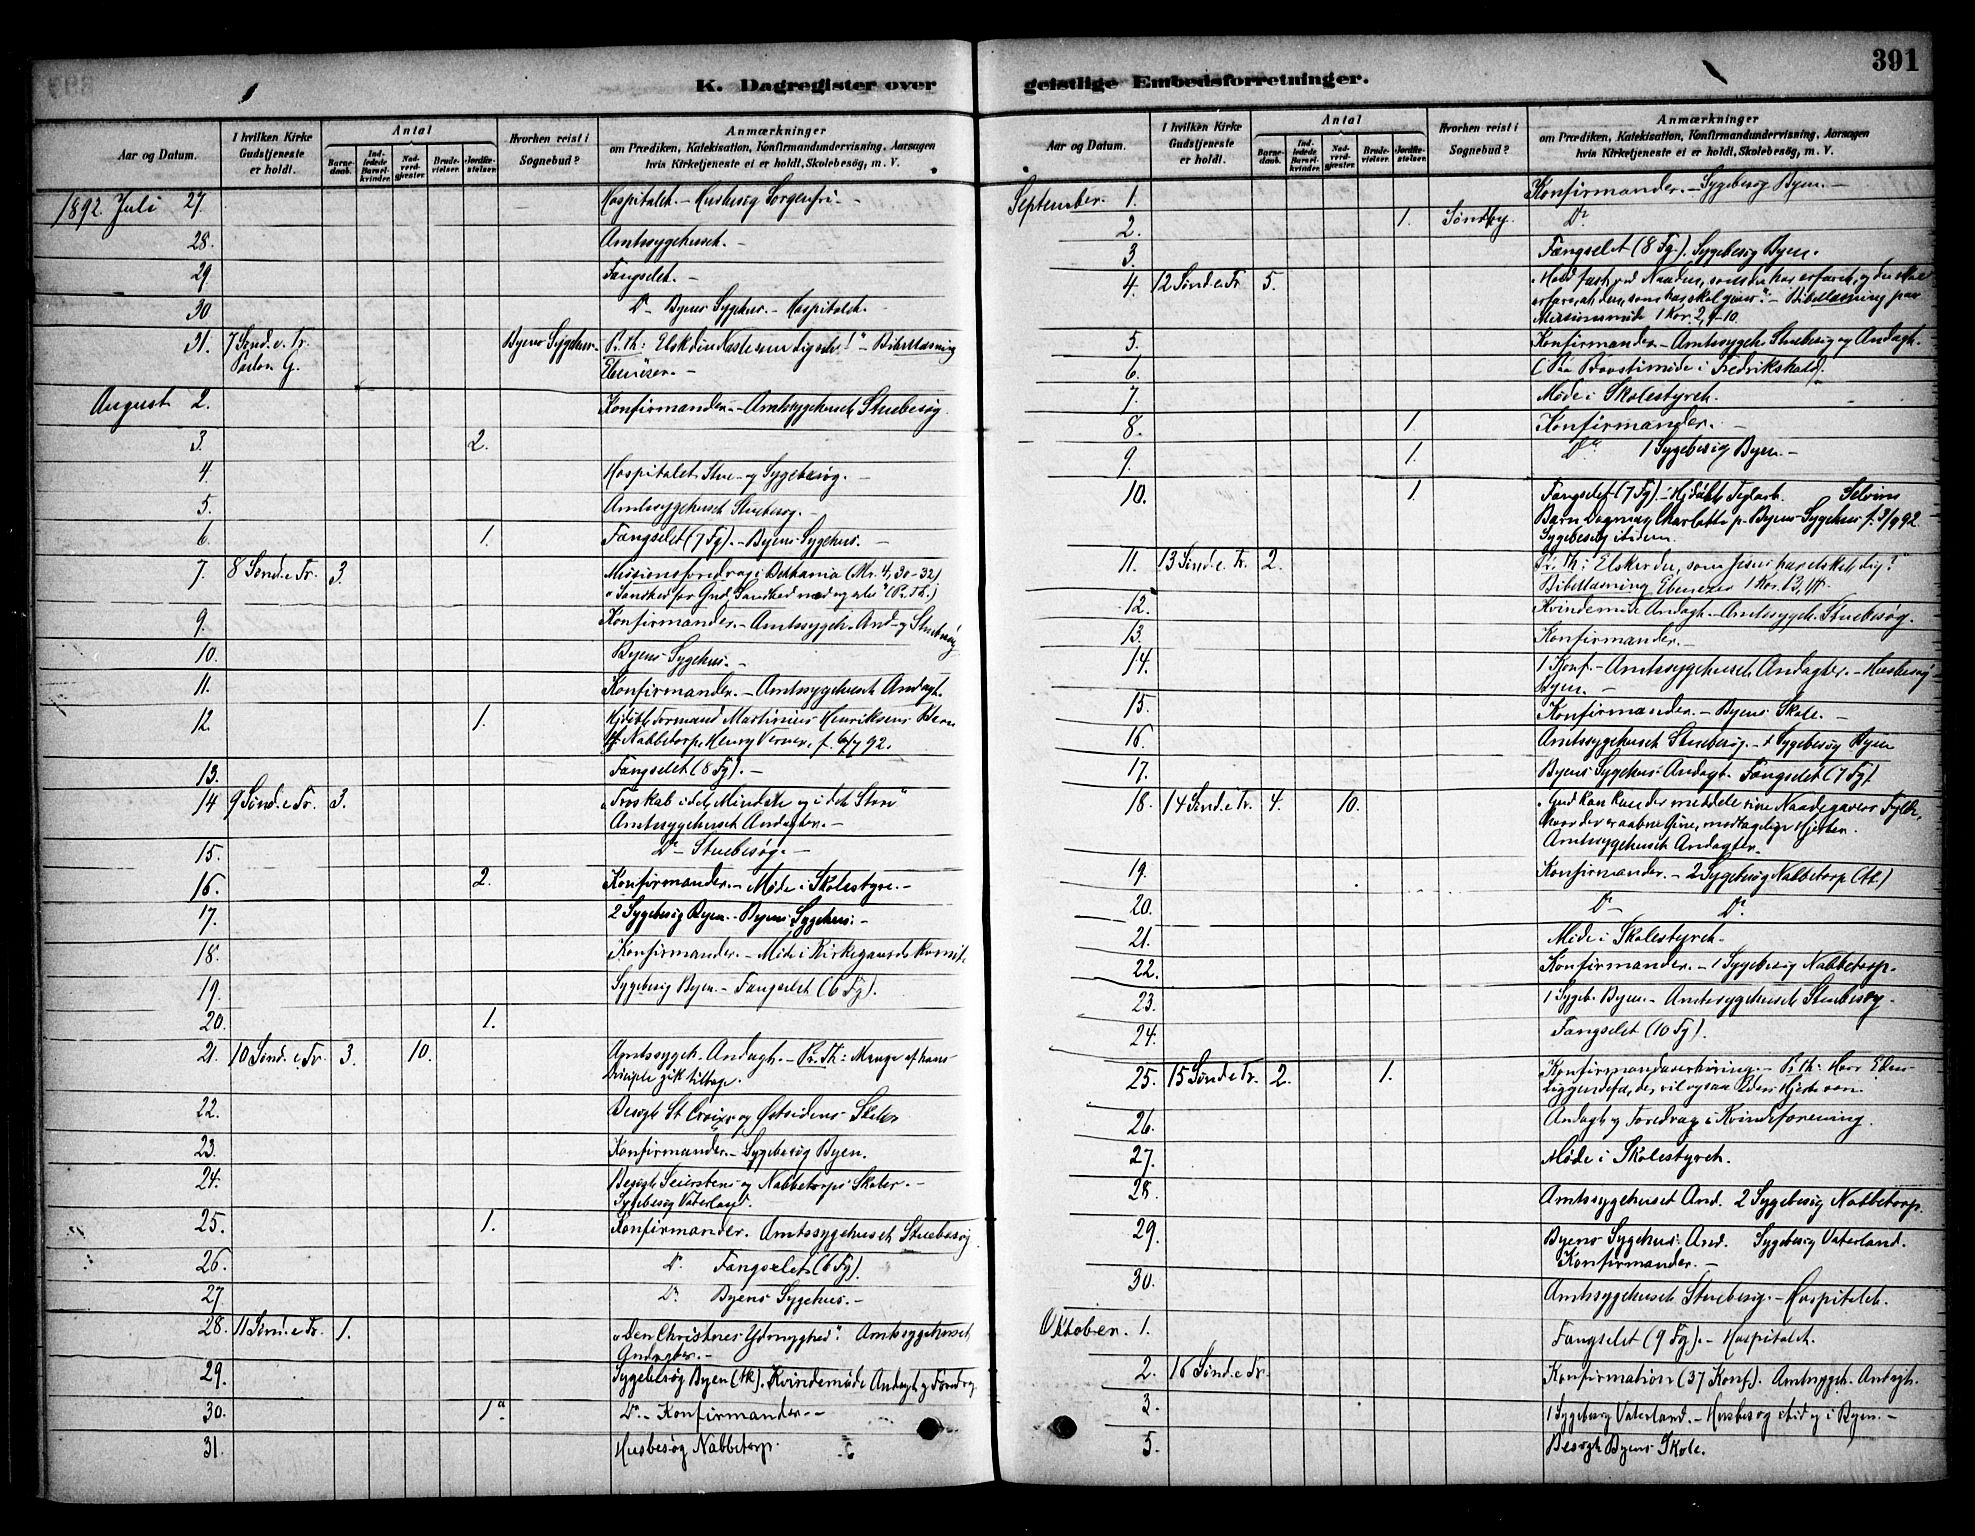 391
K. Dagregister over
Aar og Datum.
I hvilken Kirke Gudstjeneste er holdt.
Antal
Barne-daab.
Ind-ledede Barsel-kvinder.
Nad-verd-gjæster.
Brude-vielser.
Jordfæ-stelser.
Hvorhen reist i Sognebud?
Anmærkninger
om Prædiken, Katekisation, Konfirmandundervisning, Aarsagen
hvis Kirketjeneste ei er holdt, Skolebesøg, m. V.
1892 Juli 27. Hospitalet. - Husbesøg Sorgenfri. -
28. Amtssygehuset. -
29. Fængselet. -
30 Do - Byens Sygehus. - Hospitalet. -
31. 7 Sønd. e. Tr. Byens Sygehus. Pr. Th: Elsk din Næste som dig selv!" - Bibellæsning
Ebenezer. -
August 2. Konfirmander. - Amtssygehuset Stuebesøg.
3. 2.
4. Hospitalet Stue- og Sygebesøg. -
5. Amtssygehuset Stuebesøg. -
6. 1. Fængselet (7 Fg). - Byens Sygehus. -
7. 8 Sønd. e. Tr. 3. Missionsforedrag i Bethania (Mr. 4, 30-32)
9. Konfirmander. - Amtssygeh. And- og Stuebesøg
10. Byens Sygehus. -
11. Konfirmander. - Amtssygehuset Andagt.
12. 1. Hjdøbt Formand Martinius Henriksens Barn
Nabbetorp, Henry Verner, f. 6/7 92.
13. Fængselet (8 Fg). -
14 9 Sønd. e. Tr. 3. "Troskab i det Mindste og i det Store"
Amtssygehuset Andagter. -
15. Do - Stuebesøg. -
16. 2. Konfirmander. - Møde i Skolestyre. -
17. 2 Sygebesøg Byen. - Byens Sygehus. -
18. Konfirmander. - Møde i Kirkegaardskomite
19. Sygebesøg Byen. - Fængselet (6 Fg).
20. 1.
21. 10 Sønd. e. Tr. 3. 10. Amtssygeh. Andagt. - Pr. Th: Mange af hans
Disciple gik tilbage.
22. Besøgt St Croix og Østsidens Skoler
23. Konfirmander. - Sygebesøg Byen.
24. Besøgt Seierstens og Nabbetorps Skoler. -
Sygebesøg Vaterland.
25. 1. Konfirmander. Amtssygehuset Stuebesøg
26. Do Fængselet (6 Fg)
27 Do Byens Sygehus. -
28. 11 Sønd. e. Tr. 1. "Den Christnes Ydmyghed". Amtssygehuset
Andagter. -
29. Sygebesøg Byen (Ak). Kvindemøde Andagt og Foredrag
30. 1 Do. - Konfirmander. -
31. Husbesøg Nabbetorp.
geistlige Embedsforretninger.
Aar og Datum.
I hvilken Kirke Gudstjeneste er holdt.
Antal
Barne-daab.
Ind-ledede Barsel-kvinder.
Nad-verd-gjæster.
Brude-vielser.
Jordfæ-stelser.
Hvorhen reist i Sognebud?
Anmærkninger
om Prædiken, Katekisation, Konfirmandundervisning, Aarsagen
hvis Kirketjeneste ei er holdt, Skolebesøg, m. V.
September 1. Konfirmander. - Sygebesøg Byen. -
2. 1. Søndby. Do
3. Fængselet (8 Fg). Sygebesøg Byen.
4. 12 Sønd. e. Tr. 5. "Hold fast ved Naaden, som du har erfaret, og du skal
erfare, at den, som har, skal gives". - Bibellæsning paa
Missionsmøde 1 Kor. 2, 9-10.
5. Konfirmander. - Amtssygeh. Stuebesøg og Andagt.
6. (Paa Provstimøde i Fredrikshald).
7. Møde i Skolestyret.
8. 1. Konfirmander. -
9. 1. Do 1 Sygebesøg Byen. -
10. 1. Fængselet (7 Fg). - Hjdøbt Teglarb. Selvius
Barn Dagmar Charlotte p. Byens Sygehus f. 3/9 92.
Sygebesøg
11. 13 Sønd. e. Tr. 2. Pr. Th: Elsker du, som Jesus har elsket dig?
Bibellæsning Ebenezer 1 Kor. 13,
12. Kvindemøde Andagt. - Amtssygeh. Stuebesøg.
13. Konfirmander. -
14. 1 Konf. - Amtssygehuset Andagter. - Husbesøg
Byen. -
15. Konfirmander. - Byens Skole. -
16 Amtssygehuset Stuebesøg. - 1 Sygebesøg Byen
17. Byens Sygehus. Andagt. Fængselet (7 Fg).
18. 14 Sønd. e. Tr. 4. 10. "Gud kan kun der meddele sine Naadegavers Fylde,
hvor der er aabne Øine, modtagelige Hjerter.
Amtssygehuset Andagter.
19. Konfirmander. - 2 Sygebesøg Nabbetorp (Ak)
20. Do - Do.
21. Møde i Skolestyret.
22. Konfirmander. - 1 Sygebesøg Nabbetorp.
23. 1 Sygeb. Byen. - Amtssygehuset Stuebesøg.
24. Fængselet (10 Fg).
25. 15 Sønd e Tr. 2. 1. Konfirmandoverhøring. - Pr. Th: Hvor Eders
Liggendefæ, der vil ogsaa Eders Hjerte være.
26. Andagt og Foredrag i Kvindeforening.
27. Møde i Skolestyret.
28 Amtssygehuset And. 2 Sygebesøg Nabbetorp.
29. Byens Sygehus. And. Sygebesøg Vaterland.
Konfirmander. -
30. Amtssygehuset Stuebesøg. - Hospitalet.
Oktober. 1. Fængselet (9 Fg). - Hospitalet.
2. 16 Sønd. e. Tr. Konfirmation (37 Konf). Amtssygeh. Andagt.
3. 1 Sygebesøg Vaterland. - Husbesøg og i Byen. -
5. Besøgt Byens Skole.